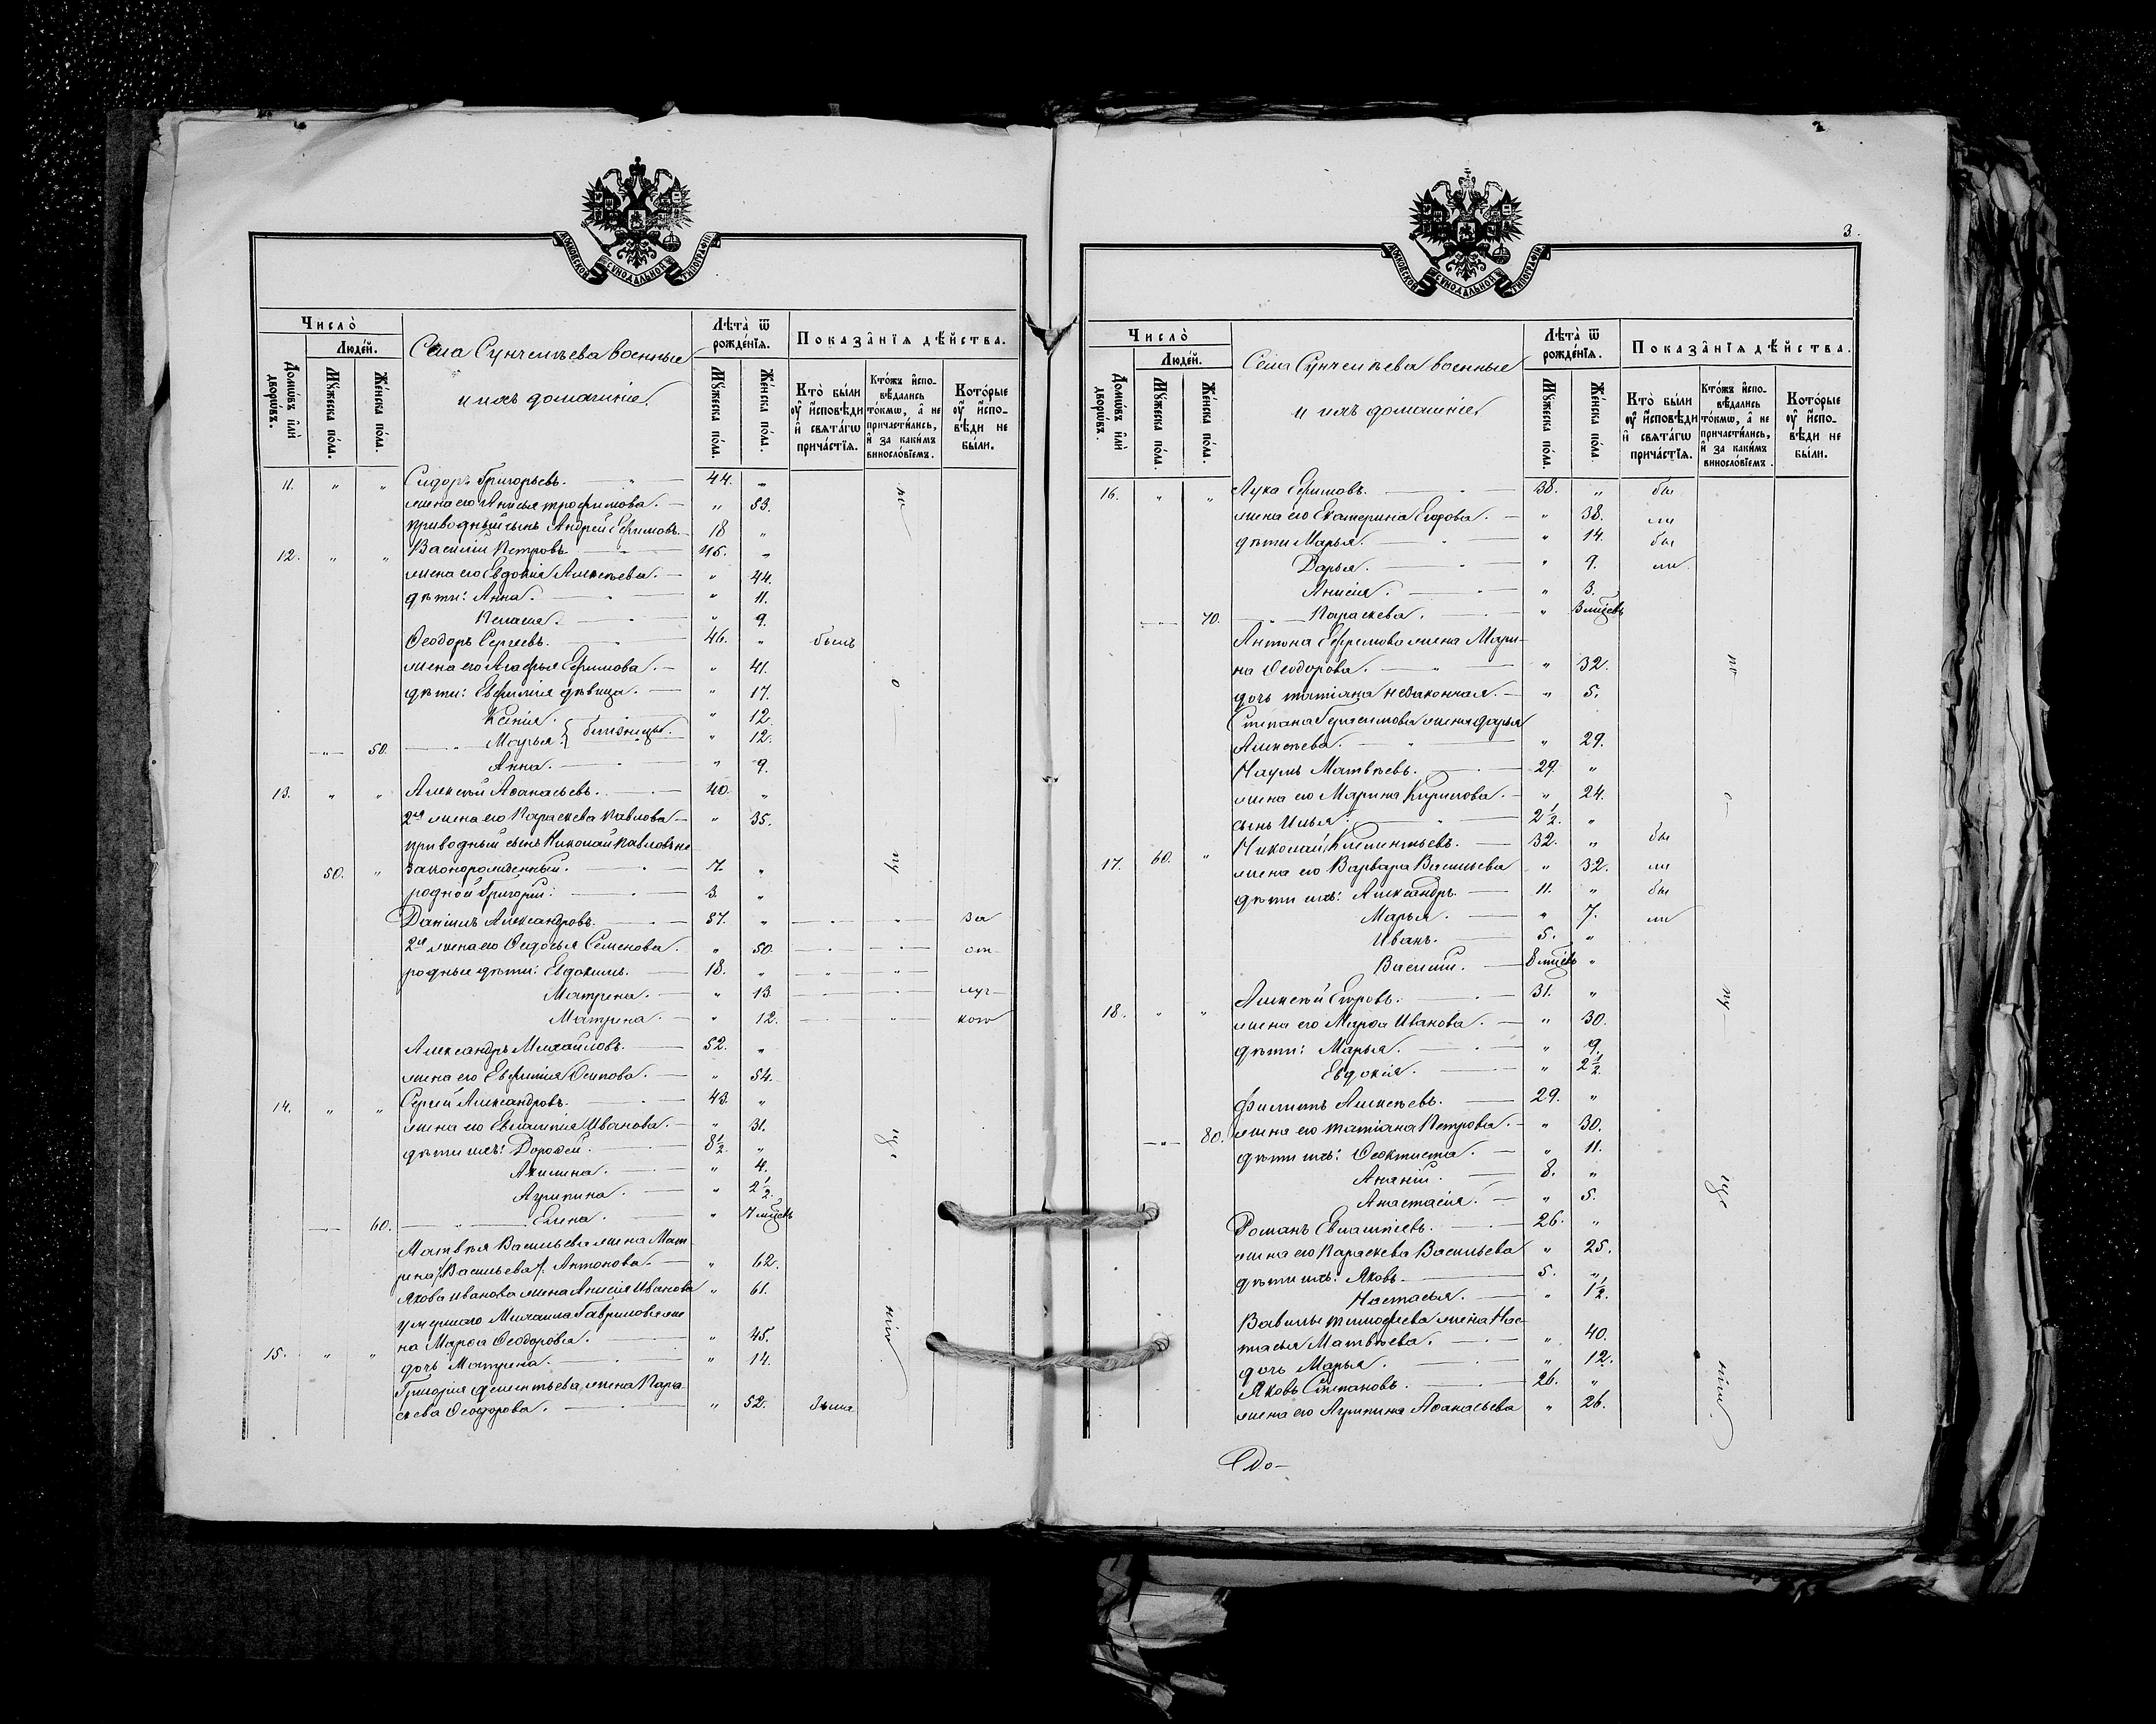 МОСКОВСКОЙ СУНОДАЛЬНОЙ ТИПОГРАФІИ
Число̀
Людéй.
Домѡ́въ и҆лѝ дворѡ́въ.
Мꙋ́жеска пóла.
Же́нска пóла.
Села Сунчелѣева военные
и ихъ домашніе.
Лѣта̀ ѿ рождéнїѧ.
Мꙋ́жеска пóла.
Же́нска пóла.
Показа̑нїѧ дѣ́йства.
Ктò бы́ли оу҆ и҆сповѣ́ди и҆ свѧтáгѡ причáстїѧ.
Ктóжъ и҆сповѣ́дались тóкмѡ, а҆ не причасти́лись, и҆ за каки́мъ винослóвїемъ.
Котóрые оу҆ и҆сповѣ́ди не бы́ли.
11. „ „ Сидоръ Григорьевъ. 44. „
жена его Анисья Трофимова. „ 53.
приводный сынъ Андрей Ефимовъ. 18 „
12. „ „ Василій Петровъ 45. „
жена его Евдокія Алексѣева. „ 44.
дѣти: Анна. „ 11.
Пелагія. „ 9.
Ѳеодоръ Сергѣевъ. 46. „ былъ
жена его Агафья Ефимова. „ 41.
дѣти: Евфимія дѣвица. „ 17.
Ксенія. „ 12.
„ 50. Марья. } близницы. „ 12.
Анна. „ 9.
13. „ „ Алексѣй Аѳанасьевъ. 40. „
2ая жена его Параскева Павлова „ 35.
приводный сынъ Николай Павловъ не
50. „ законорожденный. 7. „
родной Григорій: 3. „
Даніилъ Александровъ. 57. „ „ за
2я жена его Ѳедосья Семенова. „ 50. от
родные дѣти: Евдокимъ. 18. „ „ „
Матрена. „ 13. луч
Матрена. „ 12. „ кою
Александръ Михайловъ. 52. „
жена его Евфимія Осипова. „ 54.
14. „ „ Сергѣй Александровъ. 43. „
жена его Евлампія Иванова. „ 31.
дѣти ихъ: Дороѳей. 8½. „
Акилина. „ 4.
Агрипина. „ 2½.
60. Елена. „ 7 мцевъ
Матвѣя Васильева жена Мат
рена /:Васильева:/ Антонова. „ 62.
Якова Иванова жена Анисія Иванова „ 61.
умершаго Михаила Гаврилова же
на Марѳа Ѳеодорова. „ 45.
15. „ „ дочь Матрена. „ 14.
Григорія Филентьева жена Пара
скева Ѳеодорова. „ 52. была
по
о
пу
ще
нію
3.
МОСКОВСКОЙ СУНОДАЛЬНОЙ ТИПОГРАФІИ
Число̀
Людéй.
Домѡ́въ и҆лѝ дворѡ́въ.
Мꙋ́жеска пóла.
Же́нска пóла.
Села Сунчелѣева военные
и ихъ домашніе
Лѣта̀ ѿ рождéнїѧ.
Мꙋ́жеска пóла.
Же́нска пóла
Показа̑нїѧ дѣ́йства.
Ктò бы́ли оу҆ и҆сповѣ́ди и҆ свѧтáгѡ причáстїѧ.
Ктóжъ и҆сповѣ́дались тóкмѡ, а҆ не причасти́лись, и҆ за каки́мъ винослóвїемъ.
Котóрые оу҆ и҆сповѣ́ди не бы́ли.
16. „ „ Лука Ефимовъ. 38. „ бы
жена его Екатерина Егорова. „ 38. ли
дѣти Марья. „ 14. бы
Дарья. „ 9. ли
Анисія. „ 3.
70. Параскева. „ 3 мцевъ
Антона Ефремова жена Мари
на Ѳеодорова. „ 32.
дочь Татіана незаконная. „ 5.
Степана Герасимова жена Дарья
Алексѣева. „ 29.
Наумъ Матвѣевъ. 29. „
жена его Марина Кирилова. „ 24.
сынъ Илья. 2½. „
Николай Климентьевъ. 32. „ бы
17. 60. „ жена его Варвара Васильева „ 32. ли
дѣти ихъ: Александръ. 11. „ бы
Марья. „ 7. ли
Иванъ. 5. „
Василій. 8 мцевъ „
Алексѣй Егоровъ. 31. „
18. „ „ жена его Марѳа Иванова. „ 30.
дѣти: Марья. „ 9.
Евдокія. „ 2½.
Филиппъ Алексѣевъ. 29. „
80. жена его Татіана Петрова. „ 30.
дѣти ихъ: Ѳеоктиста. „ 11.
Ананій. 8. „
Анастасія. „ 5.
Романъ Евлампіевъ. 26. „
жена его Параскева Васильева „ 25.
дѣти ихъ: Яковъ. 5. „
Настасья. „ 1½.
Вавилы Тимофеева жена Нас
тасья Матвѣева. „ 40.
дочь Марья. „ 12.
Яковъ Степановъ. 26. „
жена его Агрипина Аѳанасьева „ 26.
по
о
пу
ще
нію.